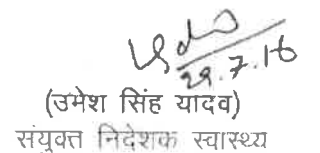 29.7.16
(उमेश सिंह यादव)
संयुक्त निदेशक स्वास्थ्य